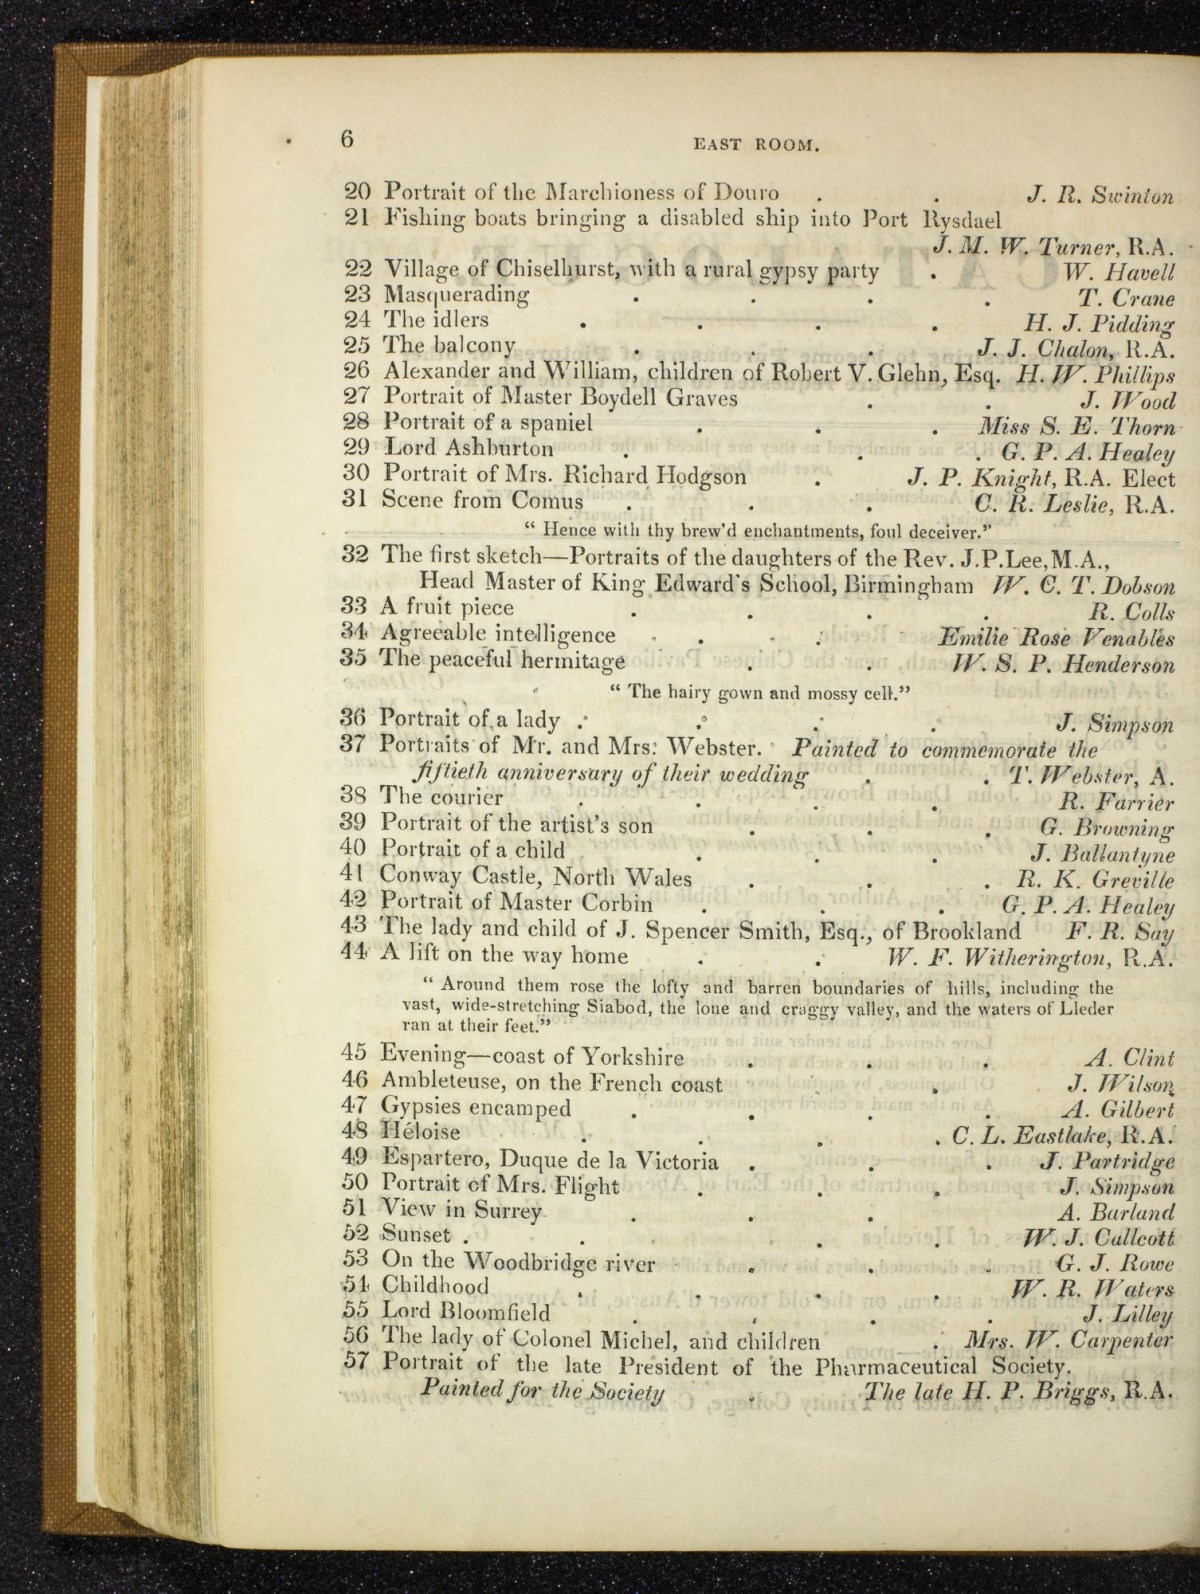 6 EAST ROOM.
20 Portrait of the Marchioness of Douro . . J. R. Swinton
21 Fishing boats bringing a disabled ship into Port Rysdael
J. M. W. Turner, R.A.
22 Village of Chiselhurst, with a rural gypsy party . W. Havell
23 Masquerading . . . . T. Crane
24 The idlers . . . . H. J. Pidding
25 The balcony . . . J. J. Chalon, R.A.
26 Alexander and William, children of Robert V. Glehn, Esq. H. W. Phillips
27 Portrait of Master Boydell Graves . . J. Wood
28 Portrait of a spaniel . . . Miss S. E. Thorn
29 Lord Ashburton . . . G. P. A. Healey
30 Portrait of Mrs. Richard Hodgson . J. P. Knight, R.A. Elect
31 Scene from Comus . . . C. R. Leslie, R.A.
“ Hence with thy brew'd enchantments, foul deceiver.”
32 The first sketch—Portraits of the daughters of the Rev. J.P.Lee, M.A.,
Head Master of King Edward's School, Birmingham W. C. T. Dobson
33 A fruit piece . . . . R. Colls
34 Agreeable intelligence . . Emilie Rose Venables
35 The peaceful hermitage . . W. S. P. Henderson
“ The hairy gown and mossy cell.”
36 Portrait of a lady . . . . J. Simpson
37 Portraits of Mr. and Mrs. Webster. Painted to commemorate the
fiftieth anniversary of their wedding . . T. Webster, A.
38 The courier . . . . R. Farrier
39 Portrait of the artist's son . . . G. Browning
40 Portrait of a child . . . J. Ballantyne
41 Conway Castle, North Wales . . . R. K. Greville
42 Portrait of Master Corbin . . . G. P. A. Healey
43 The lady and child of J. Spencer Smith, Esq., of Brookland F. R. Say
44 A lift on the way home . . W. F. Witherington, R.A.
“ Around them rose the lofty and barren boundaries of hills, including the
vast, wide-stretching Siabod, the lone and craggy valley, and the waters of Lleder
ran at their feet.”
45 Evening—coast of Yorkshire . . . A. Clint
46 Ambleteuse, on the French coast . . J. Wilson
47 Gypsies encamped . . . . A. Gilbert
48 Héloise . . . . C. L. Eastlake, R.A.
49 Espartero, Duque de la Victoria . . . J. Partridge
50 Portrait of Mrs. Flight . . . J. Simpson
51 View in Surrey . . . A. Barland
52 Sunset . . . . W. J. Callcott
53 On the Woodbridge river . . . G. J. Rowe
54 Childhood . . . . W. R. Waters
55 Lord Bloomfield . . . . J. Lilley
56 The lady of Colonel Michel, and children . Mrs. W. Carpenter
57 Portrait of the late President of the Pharmaceutical Society.
Painted for the Society . The late H. P. Briggs, R.A.